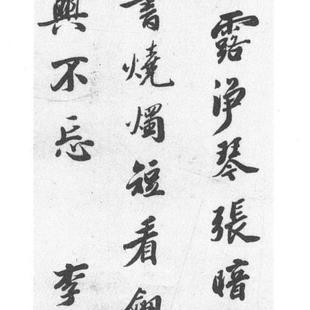 露淨琴張暗
書燒燭短看
興不忘 李